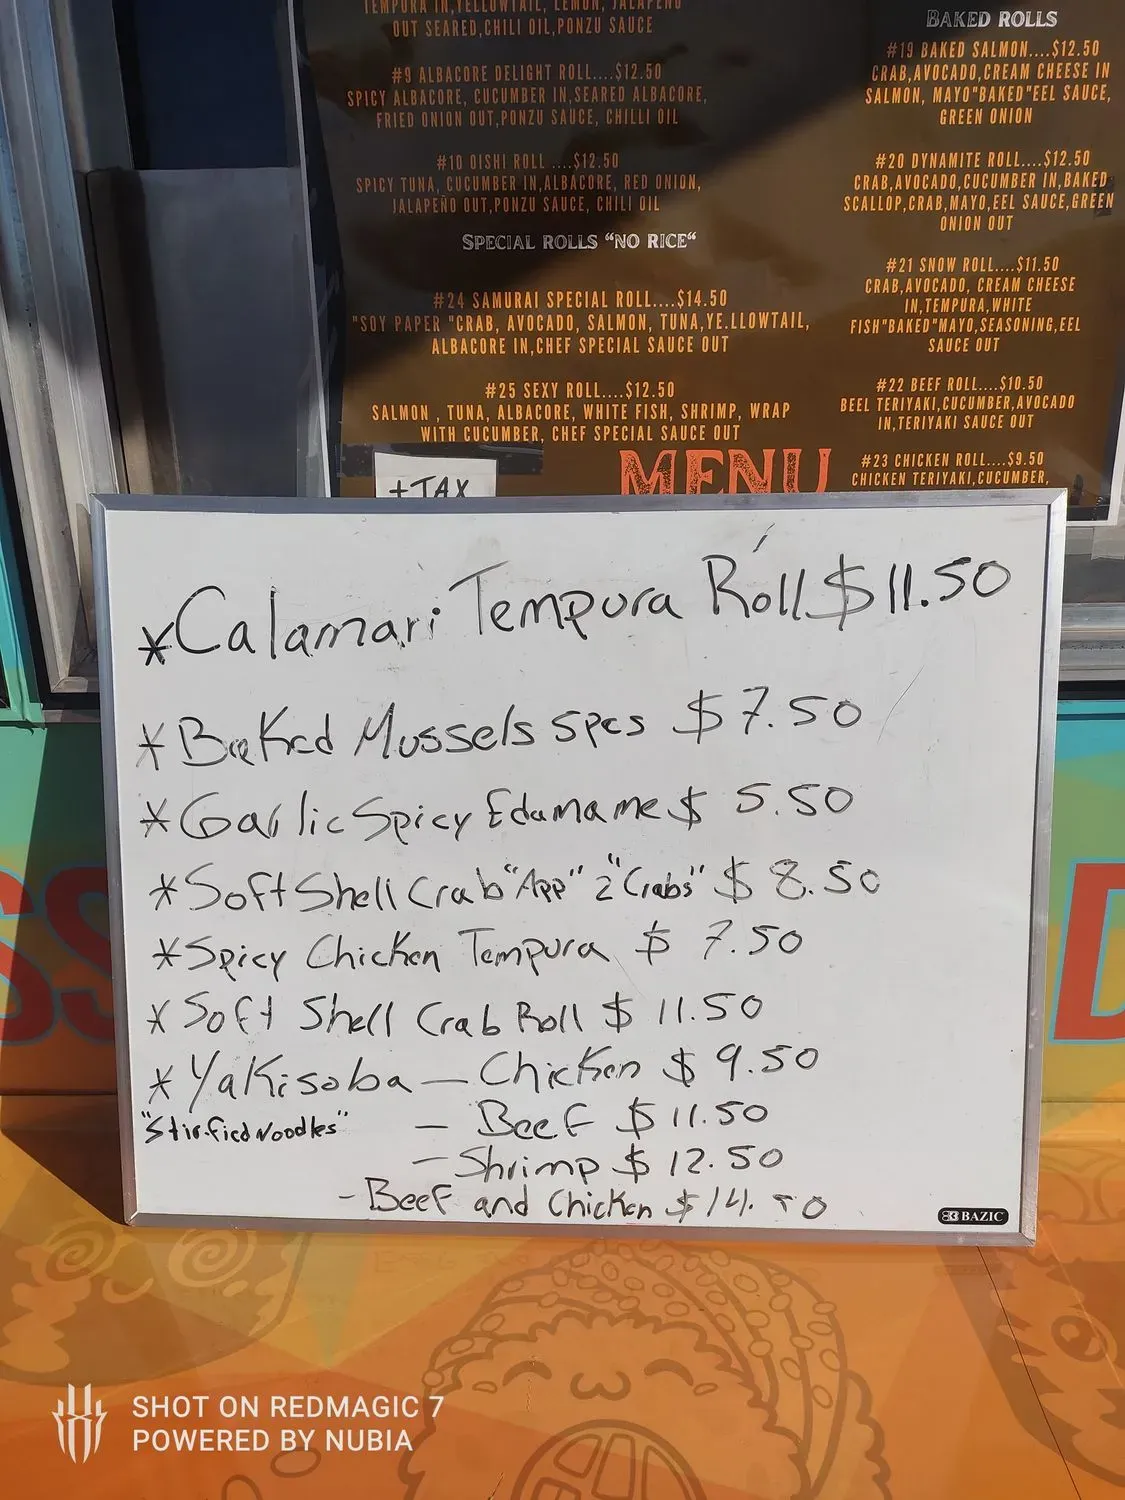 TEMPURA IN,YELLOWTAIL, LEMON, JALAPEÑO
OUT SEARED,CHILI OIL,PONZU SAUCE
#9 ALBACORE DELIGHT ROLL....$12.50
SPICY ALBACORE, CUCUMBER IN,SEARED ALBACORE,
FRIED ONION OUT,PONZU SAUCE, CHILLI OIL
#10 OISHI ROLL ....$12.50
SPICY TUNA, CUCUMBER IN,ALBACORE, RED ONION,
JALAPEÑO OUT,PONZU SAUCE, CHILI OIL
SPECIAL ROLLS "NO RICE"
#24 SAMURAI SPECIAL ROLL....$14.50
"SOY PAPER "CRAB, AVOCADO, SALMON, TUNA,YE.LLOWTAIL,
ALBACORE IN,CHEF SPECIAL SAUCE OUT
#25 SEXY ROLL....$12.50
SALMON , TUNA, ALBACORE, WHITE FISH, SHRIMP, WRAP
WITH CUCUMBER, CHEF SPECIAL SAUCE OUT
+TAX
MENU
BAKED ROLLS
#19 BAKED SALMON....$12.50
CRAB,AVOCADO,CREAM CHEESE IN
SALMON, MAYO"BAKED"EEL SAUCE,
GREEN ONION
#20 DYNAMITE ROLL....$12.50
CRAB,AVOCADO,CUCUMBER IN,BAKED
SCALLOP,CRAB,MAYO,EEL SAUCE,GREEN
ONION OUT
#21 SNOW ROLL....$11.50
CRAB,AVOCADO, CREAM CHEESE
IN,TEMPURA,WHITE
FISH"BAKED"MAYO,SEASONING,EEL
SAUCE OUT
#22 BEEF ROLL....$10.50
BEEL TERIYAKI,CUCUMBER,AVOCADO
IN,TERIYAKI SAUCE OUT
#23 CHICKEN ROLL....$9.50
CHICKEN TERIYAKI,CUCUMBER,
*Calamari Tempura Roll $11.50
*Baked Mussels 5pcs $7.50
*Garlic Spicy Edamame $ 5.50
*Soft Shell Crab "App" 2 "Crabs" $ 8.50
*Spicy Chicken Tempura $ 7.50
*Soft Shell Crab Roll $ 11.50
*Yakisoba — Chicken $ 9.50
"Stir-fied Noodles" — Beef $ 11.50
— Shrimp $ 12.50
- Beef and Chicken $ 14.50
BAZIC
SS
D
SHOT ON REDMAGIC 7
POWERED BY NUBIA